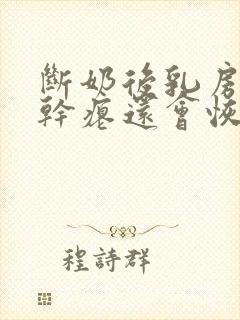 斷奶後乳房
幹癟還會恢
程詩群